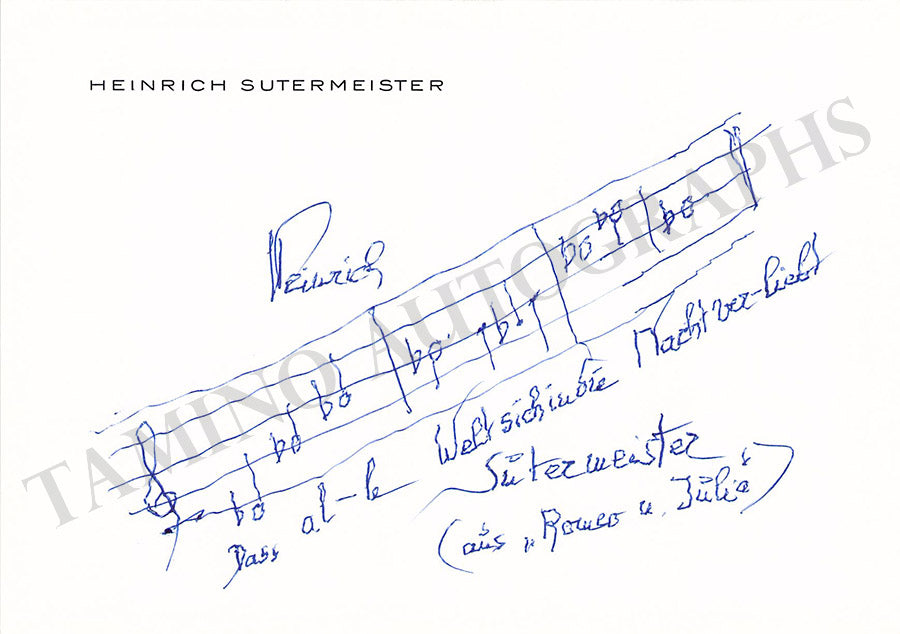 HEINRICH SUTERMEISTER
Heinrich
Dass al-le Welt sich in die Nacht ver-liebt
Sutermeister
(aus „Romeo u. Julia")
TAMINO AUTOGRAPHS